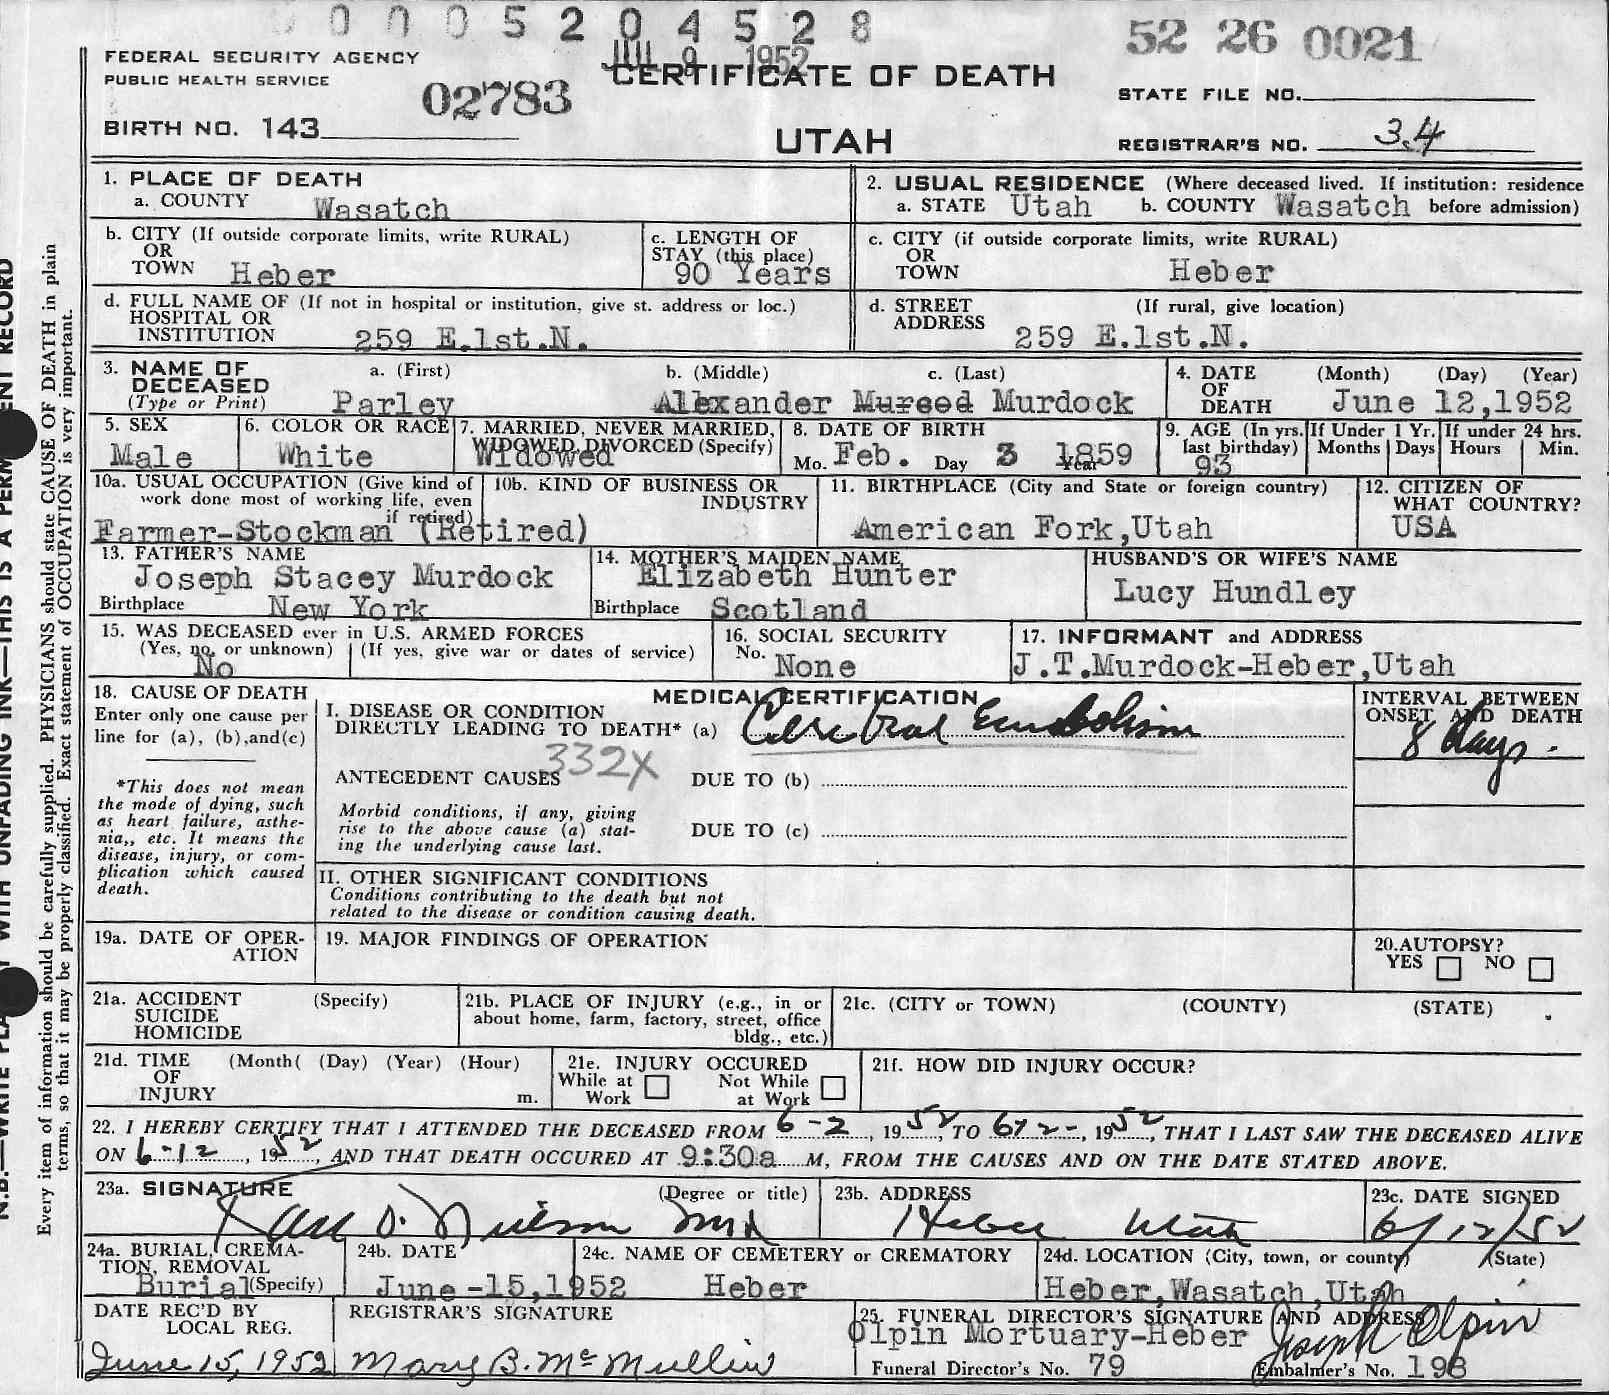 0 0 0 5 2 0 4 5 2 8
JUL 9 1952
52 26 0021
FEDERAL SECURITY AGENCY
PUBLIC HEALTH SERVICE
02783
CERTIFICATE OF DEATH
STATE FILE NO.
BIRTH NO. 143
UTAH
REGISTRAR'S NO. 34
1. PLACE OF DEATH
a. COUNTY Wasatch
2. USUAL RESIDENCE (Where deceased lived. If institution: residence
a. STATE Utah b. COUNTY Wasatch before admission)
b. CITY (If outside corporate limits, write RURAL)
OR
TOWN Heber
c. LENGTH OF
STAY (this place)
90 Years
c. CITY (if outside corporate limits, write RURAL)
OR
TOWN Heber
d. FULL NAME OF (If not in hospital or institution, give st. address or loc.)
HOSPITAL OR
INSTITUTION 259 E.1st.N.
d. STREET (If rural, give location)
ADDRESS 259 E.1st.N.
3. NAME OF a. (First) b. (Middle) c. (Last)
DECEASED
(Type or Print) Parley Alexander Murdock
4. DATE (Month) (Day) (Year)
OF
DEATH June 12,1952
5. SEX
Male
6. COLOR OR RACE
White
7. MARRIED, NEVER MARRIED,
WIDOWED, DIVORCED (Specify)
Widowed
8. DATE OF BIRTH
Mo. Feb. Day 3 Year 1859
9. AGE (In yrs.
last birthday)
93
If Under 1 Yr.
Months Days
If under 24 hrs.
Hours Min.
10a. USUAL OCCUPATION (Give kind of
work done most of working life, even
if retired)
Farmer-Stockman (Retired)
10b. KIND OF BUSINESS OR
INDUSTRY
11. BIRTHPLACE (City and State or foreign country)
American Fork,Utah
12. CITIZEN OF
WHAT COUNTRY?
USA
13. FATHER'S NAME
Joseph Stacey Murdock
Birthplace New York
14. MOTHER'S MAIDEN NAME
Elizabeth Hunter
Birthplace Scotland
HUSBAND'S OR WIFE'S NAME
Lucy Hundley
15. WAS DECEASED ever in U.S. ARMED FORCES
(Yes, no, or unknown) (If yes, give war or dates of service)
No
16. SOCIAL SECURITY
No. None
17. INFORMANT and ADDRESS
J.T.Murdock-Heber,Utah
18. CAUSE OF DEATH
Enter only one cause per
line for (a), (b),and(c)
*This does not mean
the mode of dying, such
as heart failure, asthe-
nia,, etc. It means the
disease, injury, or com-
plication which caused
death.
MEDICAL CERTIFICATION
I. DISEASE OR CONDITION
DIRECTLY LEADING TO DEATH* (a) Cerebral Embolism
332X
ANTECEDENT CAUSES DUE TO (b)
Morbid conditions, if any, giving
rise to the above cause (a) stat-
ing the underlying cause last.
DUE TO (c)
INTERVAL BETWEEN
ONSET AND DEATH
8 days.
II. OTHER SIGNIFICANT CONDITIONS
Conditions contributing to the death but not
related to the disease or condition causing death.
19a. DATE OF OPER-
ATION
19. MAJOR FINDINGS OF OPERATION
20.AUTOPSY?
YES NO
21a. ACCIDENT (Specify)
SUICIDE
HOMICIDE
21b. PLACE OF INJURY (e.g., in or
about home, farm, factory, street, office
bldg., etc.)
21c. (CITY or TOWN) (COUNTY) (STATE)
21d. TIME (Month( (Day) (Year) (Hour)
OF
INJURY m.
21e. INJURY OCCURED
While at Work Not While at Work
21f. HOW DID INJURY OCCUR?
22. I HEREBY CERTIFY THAT I ATTENDED THE DECEASED FROM 6-2, 1952, TO 6-12-, 1952, THAT I LAST SAW THE DECEASED ALIVE
ON 6-12, 1952, AND THAT DEATH OCCURED AT 9:30a M, FROM THE CAUSES AND ON THE DATE STATED ABOVE.
23a. SIGNATURE (Degree or title)
O. Nielson MD
23b. ADDRESS
Heber Utah
23c. DATE SIGNED
6/12/52
24a. BURIAL, CREMA-
TION, REMOVAL
Burial (Specify)
24b. DATE
June-15,1952
24c. NAME OF CEMETERY or CREMATORY
Heber
24d. LOCATION (City, town, or county) (State)
Heber,Wasatch,Utah
DATE REC'D BY
LOCAL REG.
June 15, 1952
REGISTRAR'S SIGNATURE
Mary B. McMullin
25. FUNERAL DIRECTOR'S SIGNATURE AND ADDRESS
Olpin Mortuary-Heber Joseph Olpin
Funeral Director's No. 79 Embalmer's No. 198
Every item of information should be carefully supplied. PHYSICIANS should state CAUSE OF DEATH in plain
terms, so that it may be properly classified. Exact statement of OCCUPATION is very important.
WITH UNFADING INK—THIS IS A PERM
ENT RECORD